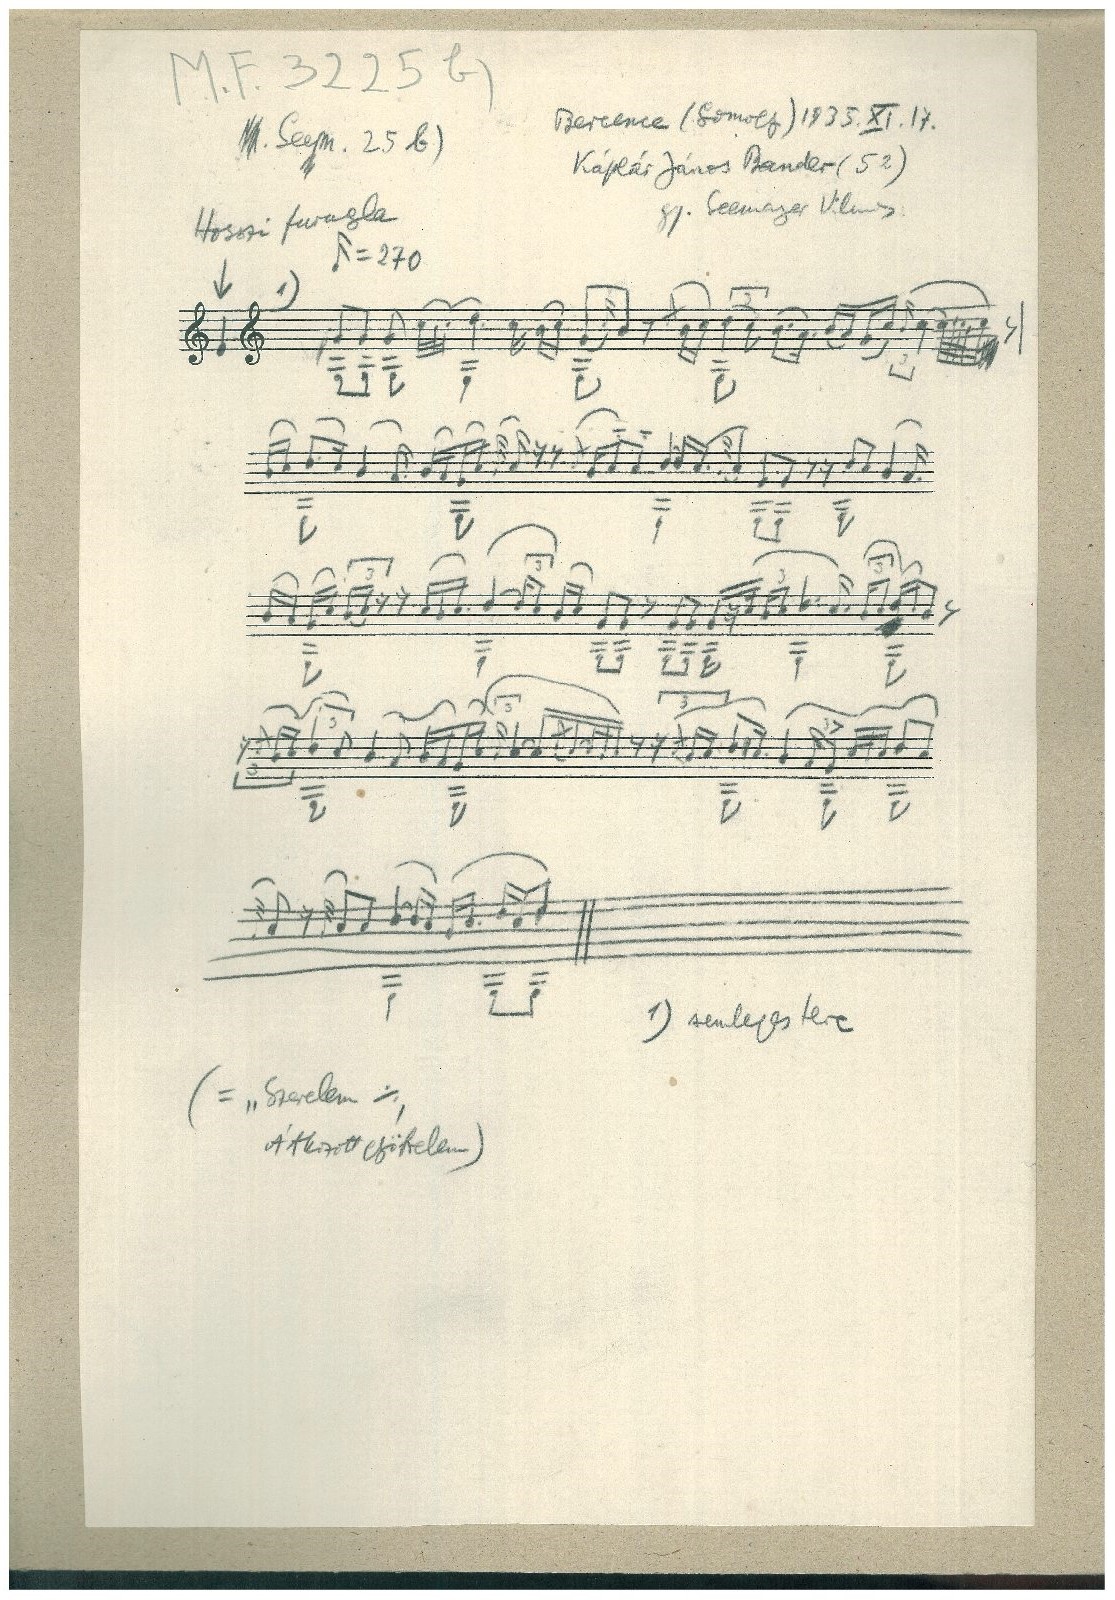 M.F. 3225 b)
Seem. 25 b)
Bercence (Somogy) 1935. XI. 17.
Káplár János Bander (52)
gy. Seemayer Vilmos
Hosszi furugla
♪ = 270
1)
3
3
3
3
3
3
3
3
3
3
3
1) semleges terc
(= „Szerelem ·/·,
Átkozott gyötrelem)